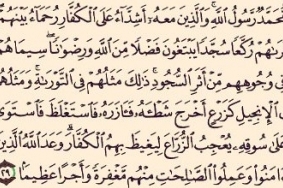 مُّحَمَّدٌ رَّسُولُ ٱللَّهِ ۚ وَٱلَّذِينَ مَعَهُۥٓ أَشِدَّآءُ عَلَى ٱلْكُفَّارِ رُحَمَآءُ بَيْنَهُمْ ۖ
تَرَىٰهُمْ رُكَّعًا سُجَّدًا يَبْتَغُونَ فَضْلًا مِّنَ ٱللَّهِ وَرِضْوَٰنًا ۖ سِيمَاهُمْ
فِى وُجُوهِهِم مِّنْ أَثَرِ ٱلسُّجُودِ ۚ ذَٰلِكَ مَثَلُهُمْ فِى ٱلتَّوْرَىٰةِ ۚ وَمَثَلُهُمْ
فِى ٱلْإِنجِيلِ كَزَرْعٍ أَخْرَجَ شَطْـَٔهُۥ فَـَٔازَرَهُۥ فَٱسْتَغْلَظَ فَٱسْتَوَىٰ
عَلَىٰ سُوقِهِۦ يُعْجِبُ ٱلزُّرَّاعَ لِيَغِيظَ بِهِمُ ٱلْكُفَّارَ ۗ وَعَدَ ٱللَّهُ ٱلَّذِينَ
ءَامَنُوا۟ وَعَمِلُوا۟ ٱلصَّٰلِحَٰتِ مِنْهُم مَّغْفِرَةً وَأَجْرًا عَظِيمًۢا ٢٩